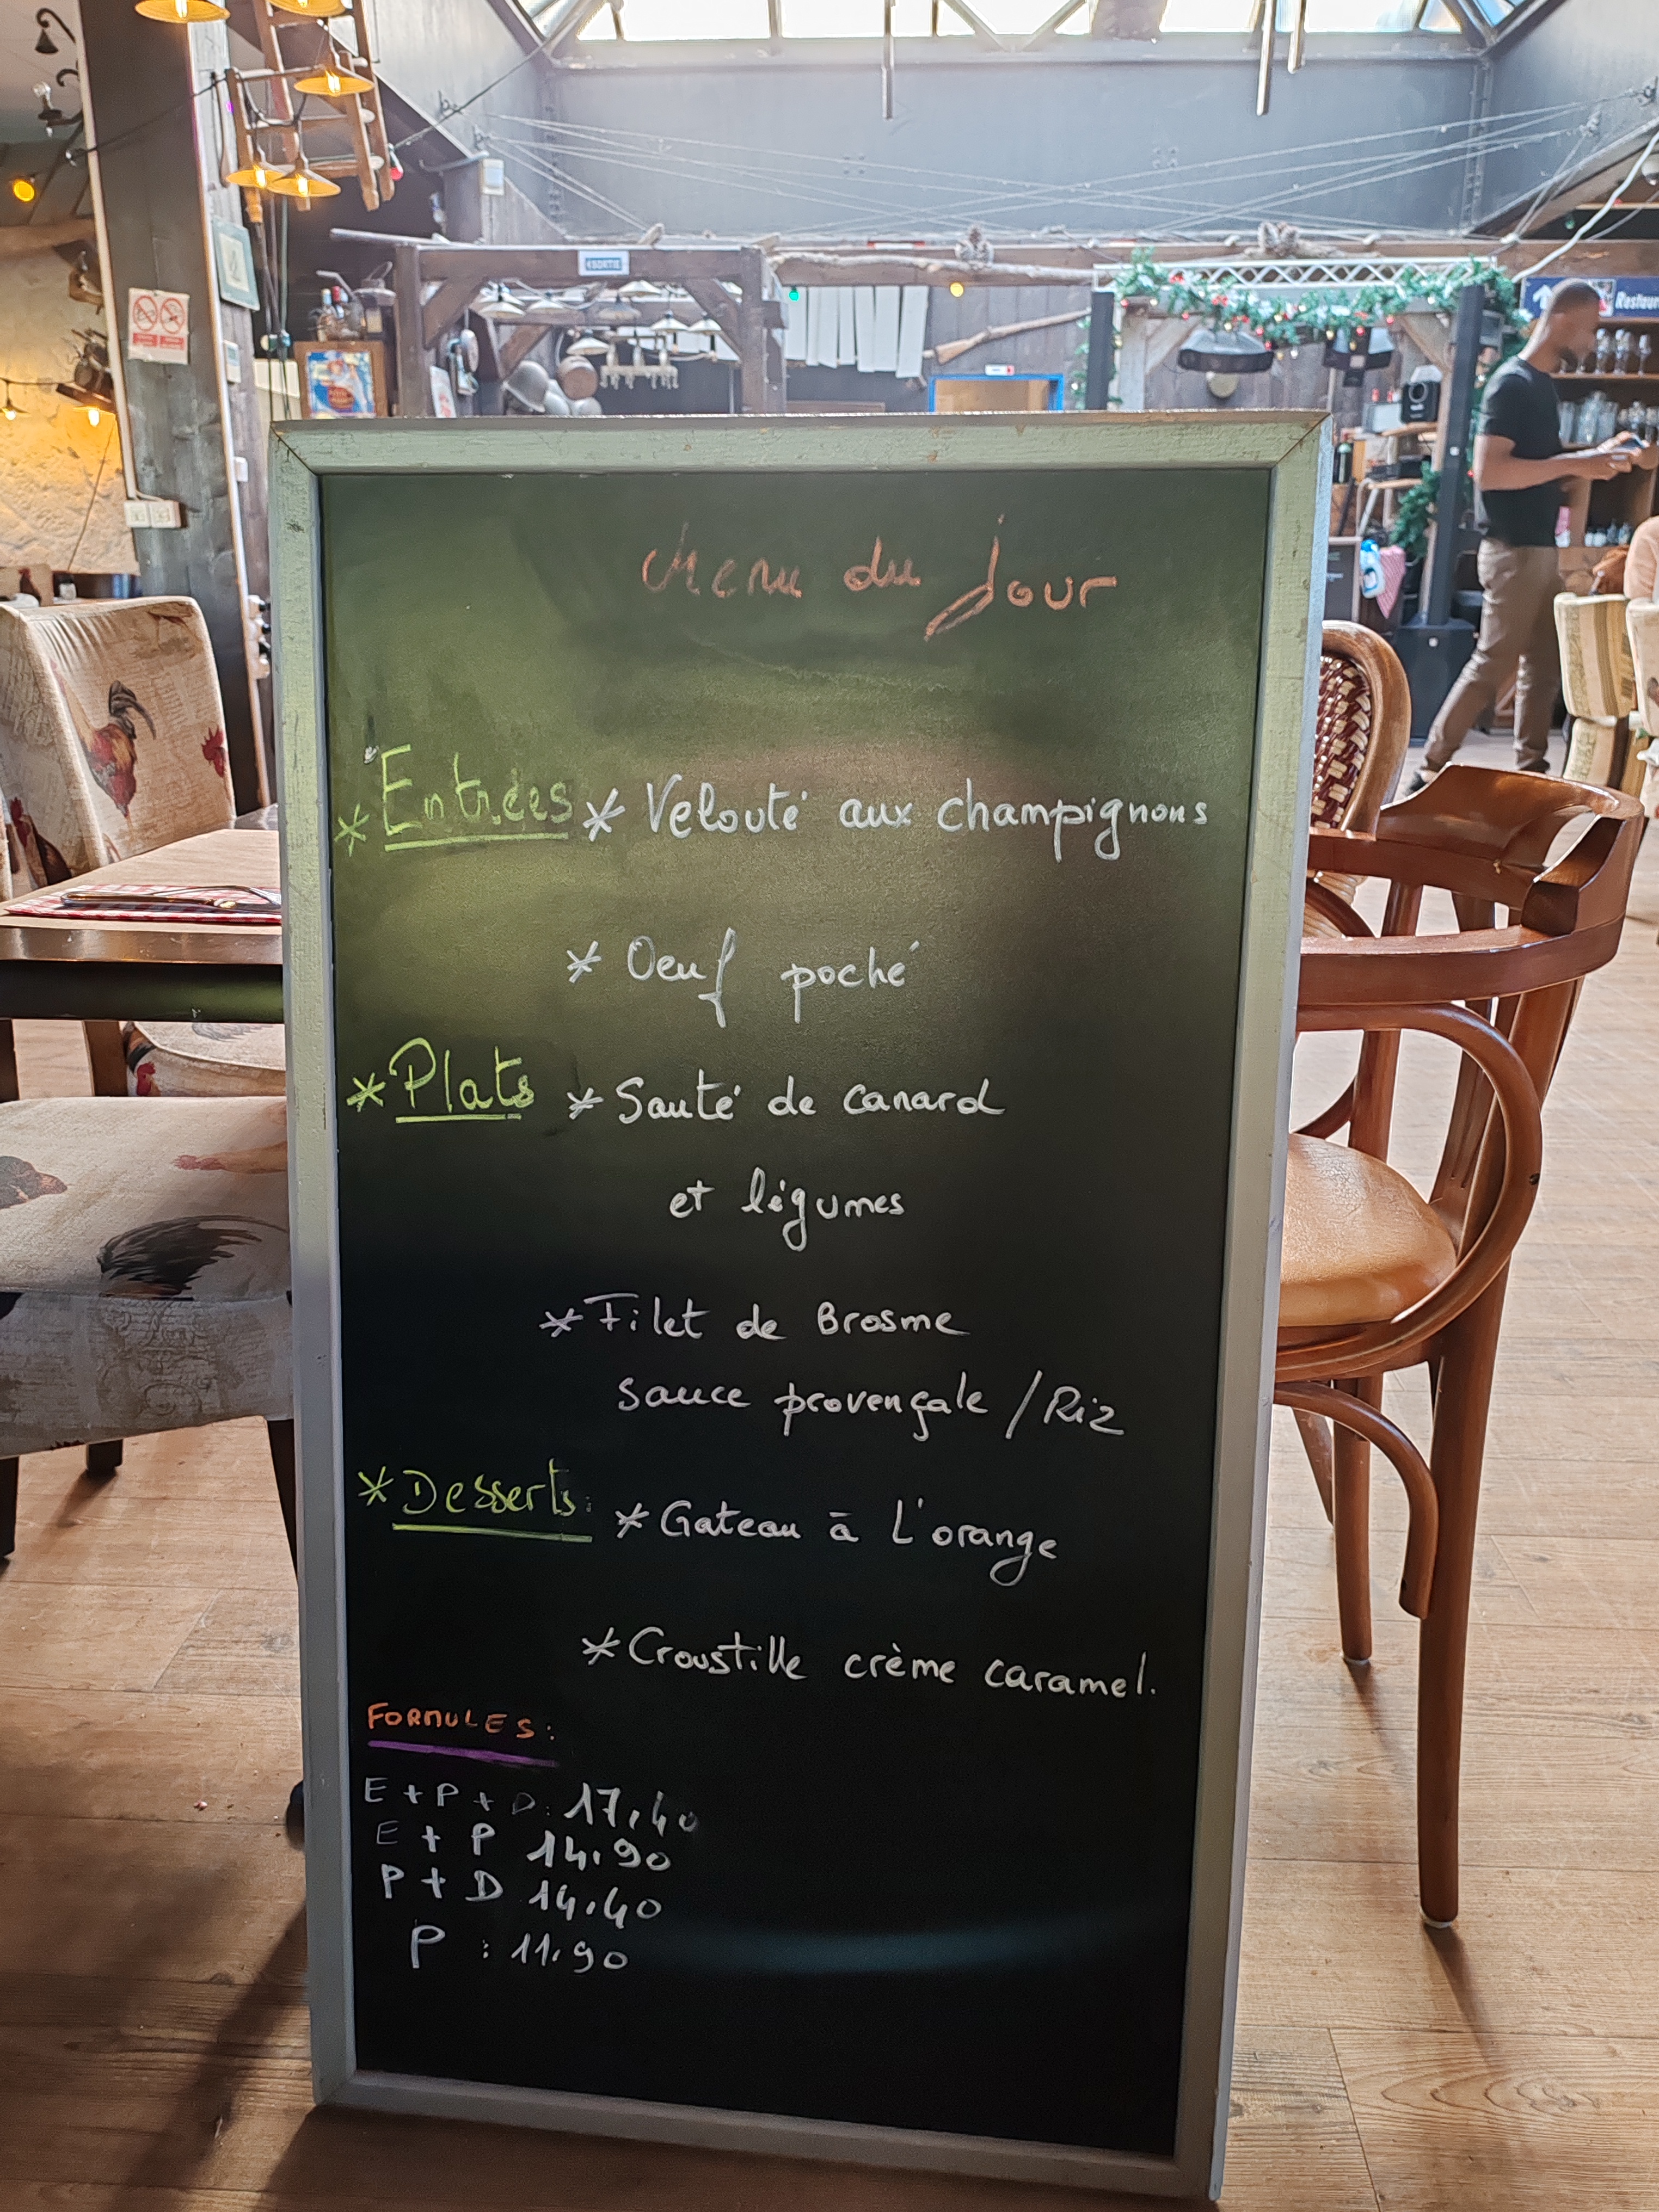 SORTIE
Restaur
Menu du jour
* Entrées * Velouté aux champignons
* Oeuf poché
* Plats * Sauté de canard
et légumes
* Filet de Brosme
sauce provençale / Riz
* Desserts: * Gateau à L'orange
* Croustille crème caramel.
FORMULES:
E + P + D: 17,40
E + P 14.90
P + D 14.40
P : 11.90